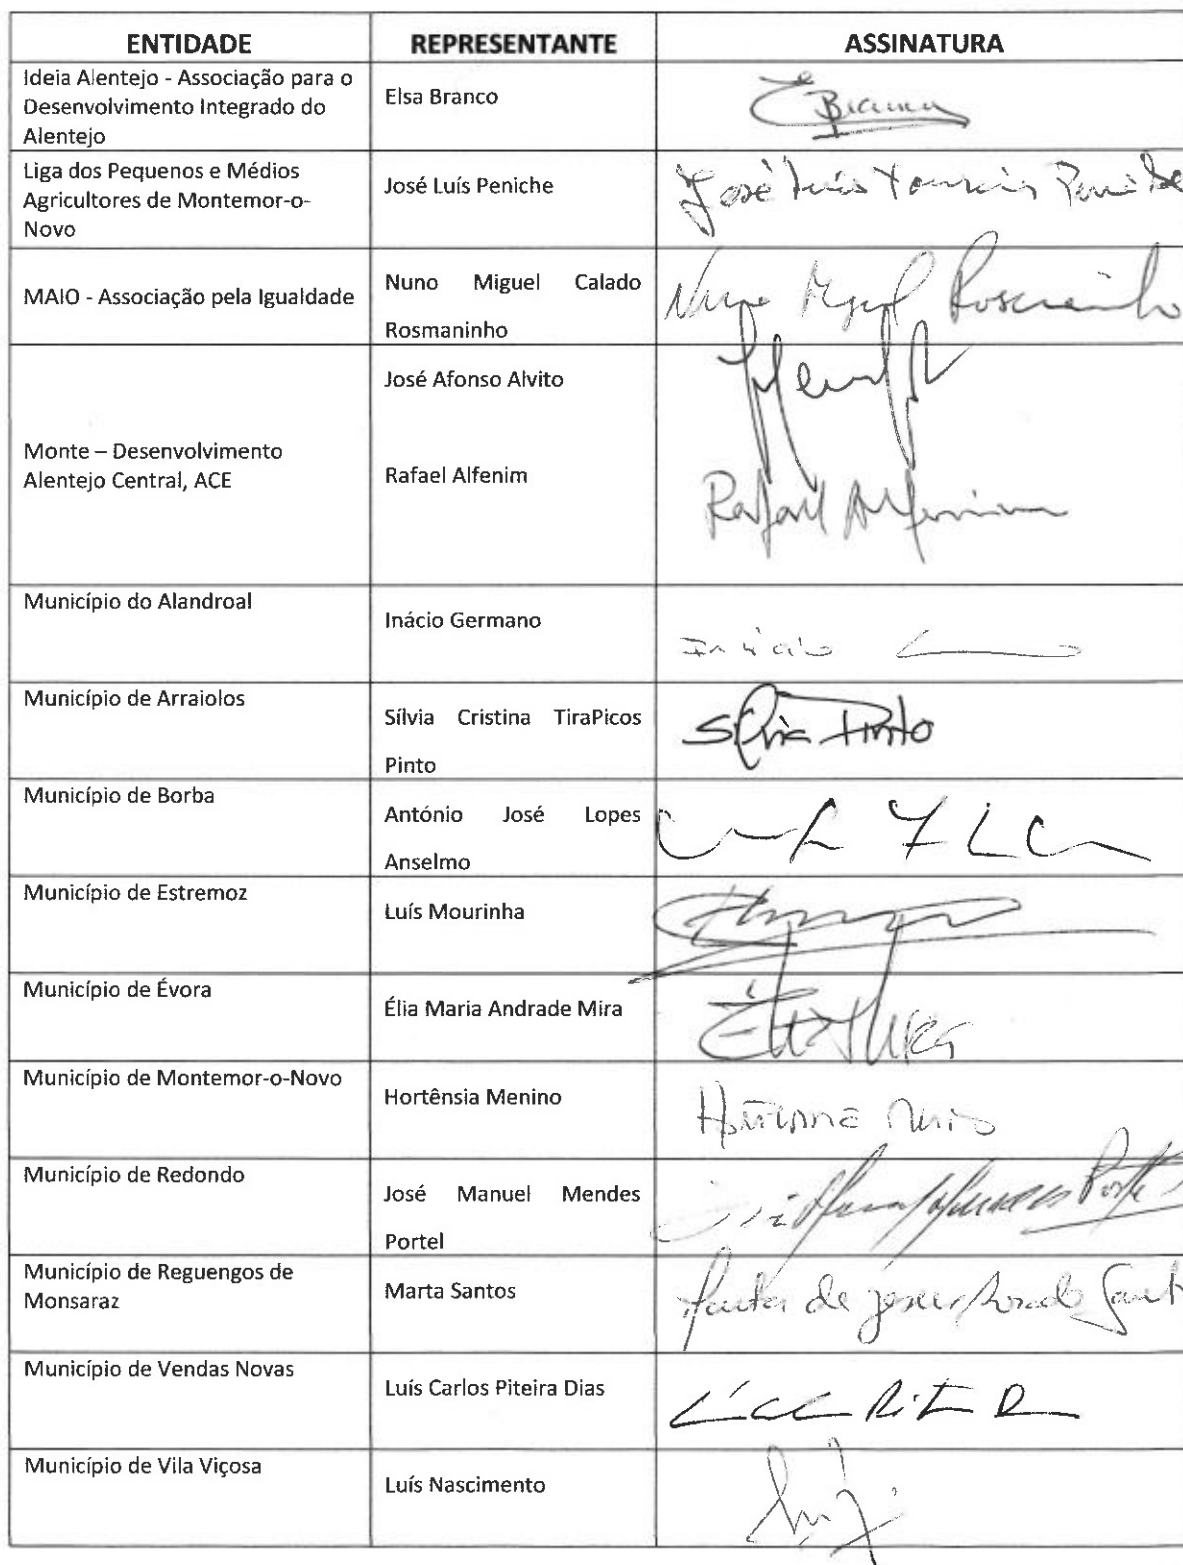 ENTIDADE REPRESENTANTE ASSINATURA
Ideia Alentejo - Associação para o
Desenvolvimento Integrado do
Alentejo
Elsa Branco
EBranco
Liga dos Pequenos e Médios
Agricultores de Montemor-o-
Novo
José Luís Peniche
José Luís Peniche
MAIO - Associação pela Igualdade
Nuno Miguel Calado
Rosmaninho
Nuno Miguel Rosmaninho
Monte – Desenvolvimento
Alentejo Central, ACE
José Afonso Alvito
Rafael Alfenim
Rafael Alfenim
Município do Alandroal
Inácio Germano
Inácio
Município de Arraiolos
Sílvia Cristina TiraPicos
Pinto
Silvia Pinto
Município de Borba
António José Lopes
Anselmo
Município de Estremoz
Luís Mourinha
Município de Évora
Élia Maria Andrade Mira
Élia Mira
Município de Montemor-o-Novo
Hortênsia Menino
Município de Redondo
José Manuel Mendes
Portel
José Manuel Mendes Portel
Município de Reguengos de
Monsaraz
Marta Santos
Marta de Jesus Rosado Sant
Município de Vendas Novas
Luís Carlos Piteira Dias
Município de Vila Viçosa
Luís Nascimento